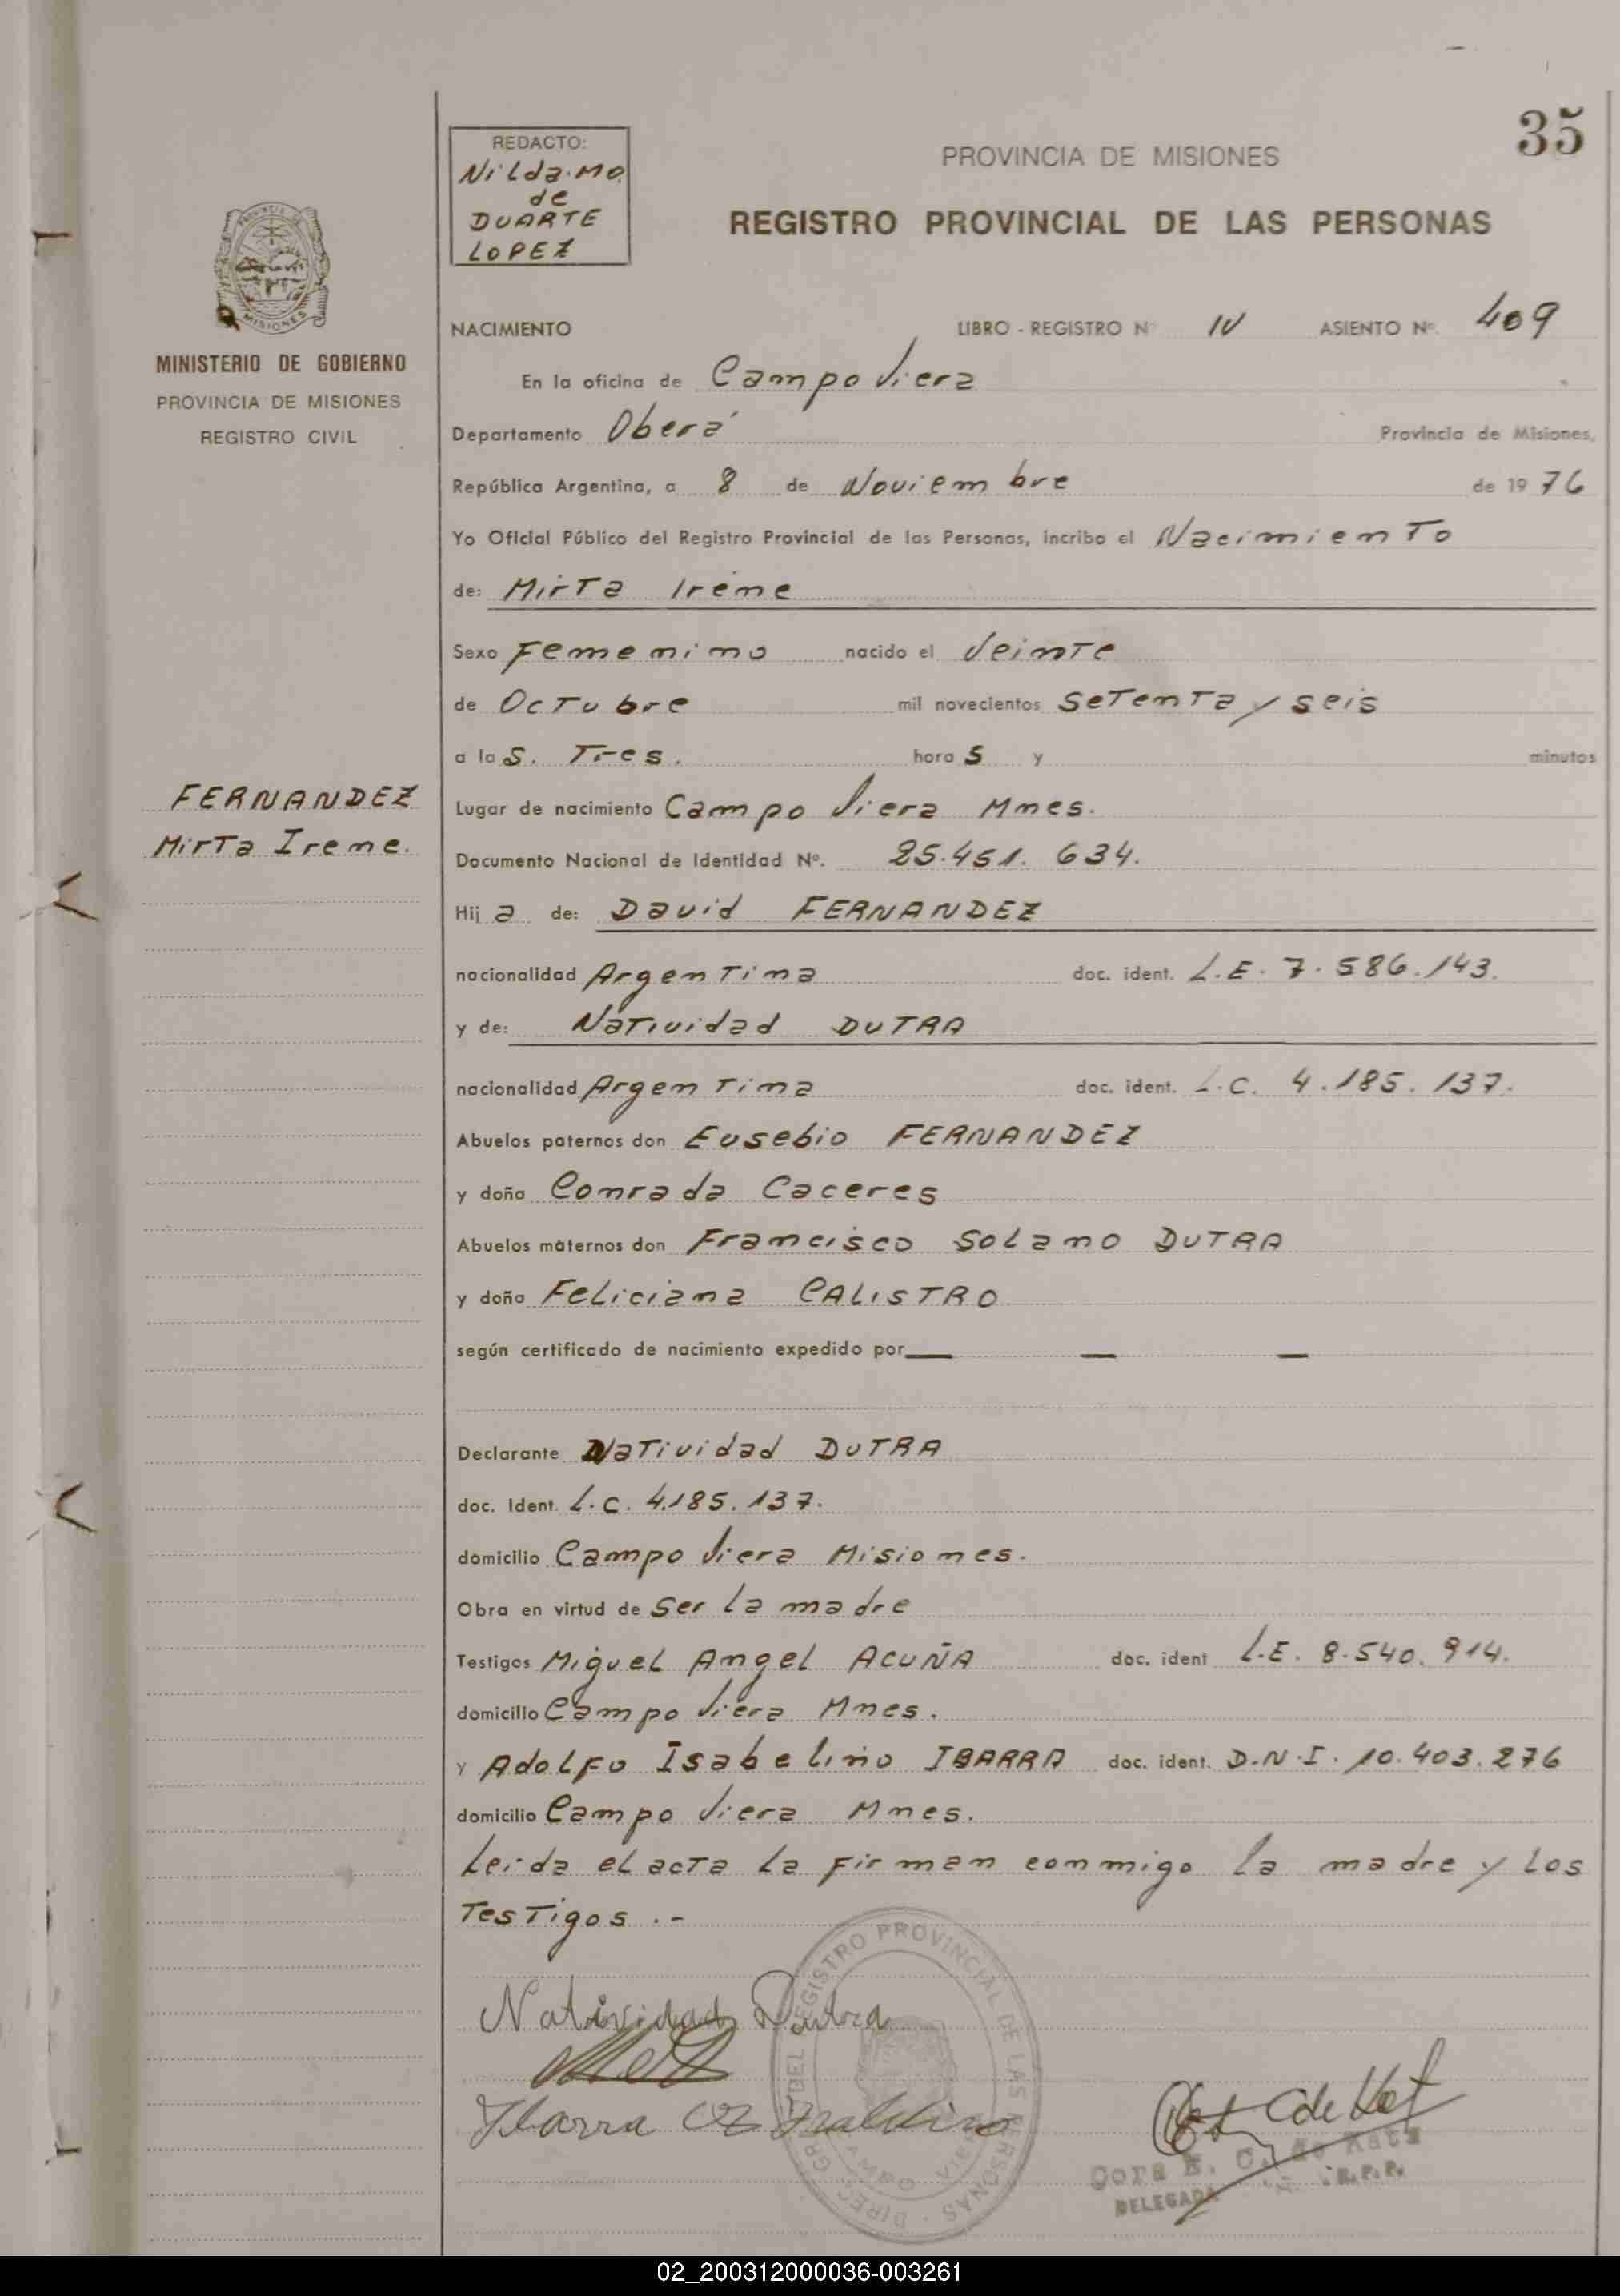 35
REDACTO:
Nilda. Mo.
de
DUARTE
LOPEZ
PROVINCIA DE MISIONES
REGISTRO PROVINCIAL DE LAS PERSONAS
MISIONES
MINISTERIO DE GOBIERNO
PROVINCIA DE MISIONES
REGISTRO CIVIL
NACIMIENTO LIBRO - REGISTRO Nº IV ASIENTO Nº. 409
En la oficina de Campo Viera
Departamento Oberá Provincia de Misiones,
República Argentina, a 8 de Noviembre de 1976
Yo Oficial Público del Registro Provincial de las Personas, incribo el Nacimiento
de: Mirta Irene
Sexo Femenino nacido el Veinte
de Octubre mil novecientos setenta y seis
a las. Tres. horas y minutos
FERNANDEZ
Mirta Irene.
Lugar de nacimiento Campo Viera Mnes.
Documento Nacional de Identidad Nº. 25.451.634.
Hija de: David FERNANDEZ
nacionalidad Argentina doc. ident. L.E. 7.586.143.
y de: Natividad DUTRA
nacionalidad Argentina doc. ident. L.C. 4.185.137.
Abuelos paternos don Eusebio FERNANDEZ
y doña Conrada Caceres
Abuelos maternos don Francisco Solano DUTRA
y doña Feliciana CALISTRO
según certificado de nacimiento expedido por — — —
Declarante Natividad DUTRA
doc. Ident. L.C. 4.185.137.
domicilio Campo Viera Misiones.
Obra en virtud de ser la madre
Testigos Miguel Angel ACUÑA doc. ident L.E. 8.540.914.
domicilio Campo Viera Mnes.
y Adolfo Isabelino IBARRA doc. ident. D.N.I. 10.403.276
domicilio Campo Viera Mnes.
Leida el acta la firman conmigo la madre y los
Testigos .-
Natividad Dutra
Ibarra
DEL REGISTRO PROVINCIAL DE LAS PERSONAS
C de Kat
Cora E. C. de Katz
DELEGADA R.P.P.
02_200312000036-003261